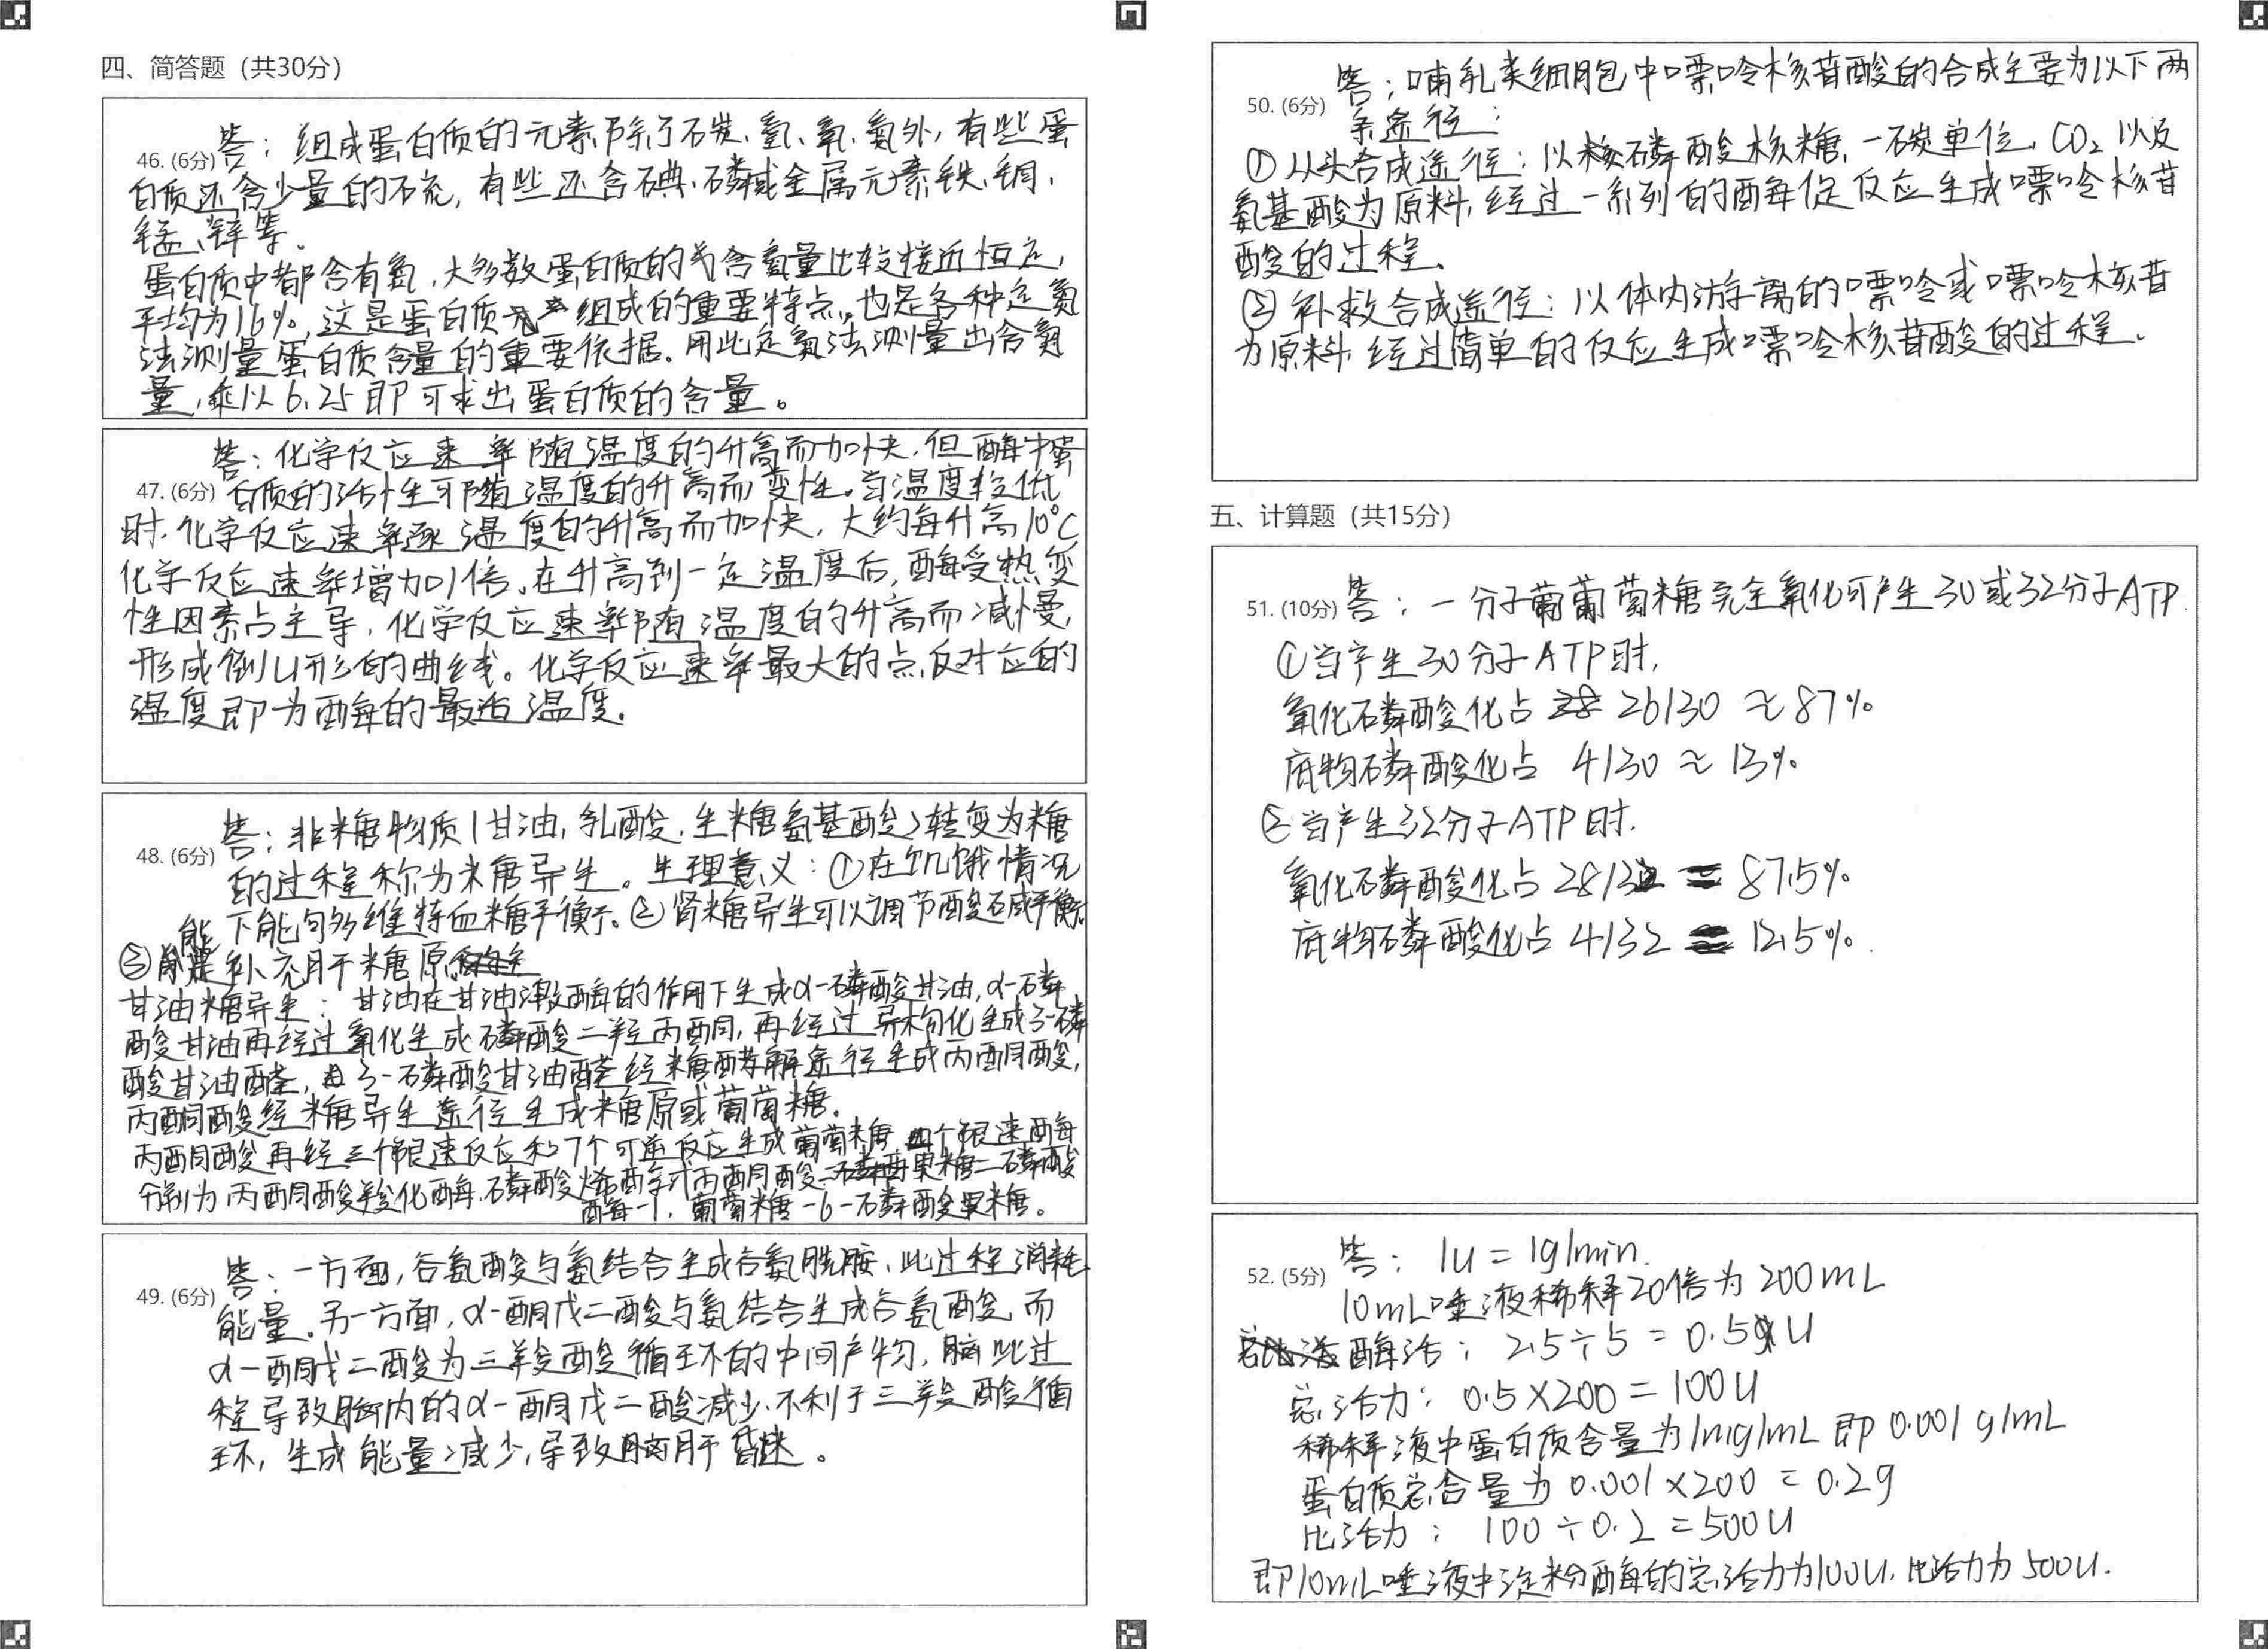 四、简答题（共30分）
46. (6分)
答：组成蛋白质的元素除了碳、氢、氧、氮外，有些蛋
白质还含少量的硫，有些还含碘、磷或金属元素铁、铜、
锰、锌等。
蛋白质中都含有氮，大多数蛋白质的含氮量比较接近恒定，
平均为16%，这是蛋白质组成的重要特点，也是各种定氮
法测量蛋白质含量的重要依据。用此定氮法测量出含氮
量，乘以6.25即可求出蛋白质的含量。
47. (6分)
答：化学反应速率随温度的升高而加快，但酶中蛋
白质的活性可随温度的升高而变性。当温度较低
时，化学反应速率逐温度的升高而加快，大约每升高10℃
化学反应速率增加1倍。在升高到一定温度后，酶受热变
性因素占主导，化学反应速率随温度的升高而减慢，
形成倒U形的曲线。化学反应速率最大的点，反对应的
温度即为酶的最适温度。
48. (6分)
答：非糖物质（甘油，乳酸，生糖氨基酸）转变为糖
的过程称为糖异生。生理意义：①在饥饿情况
下能够多维持血糖平衡。②肾糖异生可以调节酸碱平衡
③能补充肝糖原
甘油糖异生：甘油在甘油激酶的作用下生成α-磷酸甘油，α-磷
酸甘油再经过氧化生成磷酸二羟丙酮，再经过异构化生成3-磷
酸甘油醛，3-磷酸甘油醛经糖酵解途径生成丙酮酸，
丙酮酸经糖异生途径生成糖原或葡萄糖。
丙酮酸再经三个限速反应和7个可逆反应生成葡萄糖，四个限速酶
分别为丙酮酸羧化酶，磷酸烯醇式丙酮酸 果糖二磷酸
酶-1，葡萄糖-6-磷酸果糖。
49. (6分)
答：一方面，谷氨酸与氨结合生成谷氨酰胺，此过程消耗
能量。另一方面，α-酮戊二酸与氨结合生成谷氨酸，而
α-酮戊二酸为三羧酸循环的中间产物，脑此过
程导致脑内的α-酮戊二酸减少，不利于三羧酸循
环，生成能量减少，导致脑肝昏迷。
50. (6分)
答：哺乳类细胞中嘌呤核苷酸的合成主要为以下两
条途径：
①从头合成途径：以磷酸核糖，一碳单位，CO₂以及
氨基酸为原料，经过一系列的酶促反应生成嘌呤核苷
酸的过程。
②补救合成途径：以体内游离的嘌呤或嘌呤核苷
为原料，经过简单的反应生成嘌呤核苷酸的过程。
五、计算题（共15分）
51. (10分)
答：一分子葡萄糖完全氧化可产生30或32分子ATP.
①当产生30分子ATP时，
氧化磷酸化占 26/30 ≈ 87%
底物磷酸化占 4/30 ≈ 13%
②当产生32分子ATP时.
氧化磷酸化占 28/32 = 87.5%
底物磷酸化占 4/32 = 12.5%.
52. (5分)
答：1U = 1g/min.
10mL唾液稀释20倍为200mL
酶活：2.5÷5 = 0.5U
总活力：0.5×200 = 100U
稀释液中蛋白质含量为1mg/mL即0.001g/mL
蛋白质总含量为0.001×200 = 0.2g
比活力：100÷0.2 = 500U
即10mL唾液中淀粉酶的总活力为100U，比活力为500U.